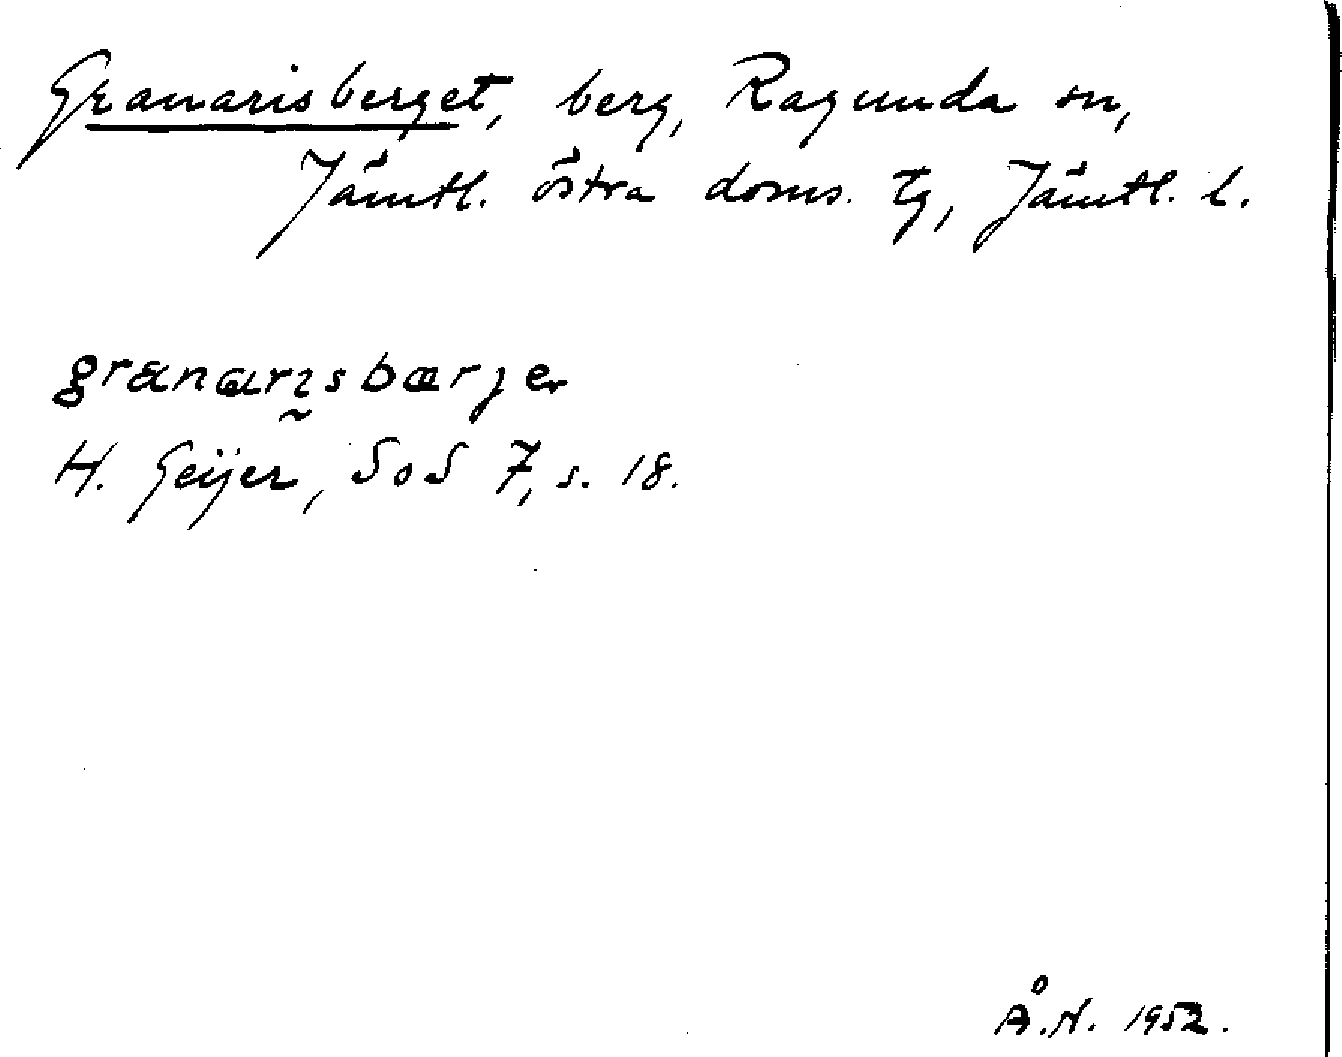 Granarisberget, berg, Ragunda sn,
Jämtl. östra doms. tg, Jämtl. l.
granarısbærȷer
H. Geijer, SoS 7, s. 18.
Å.N. 1952.